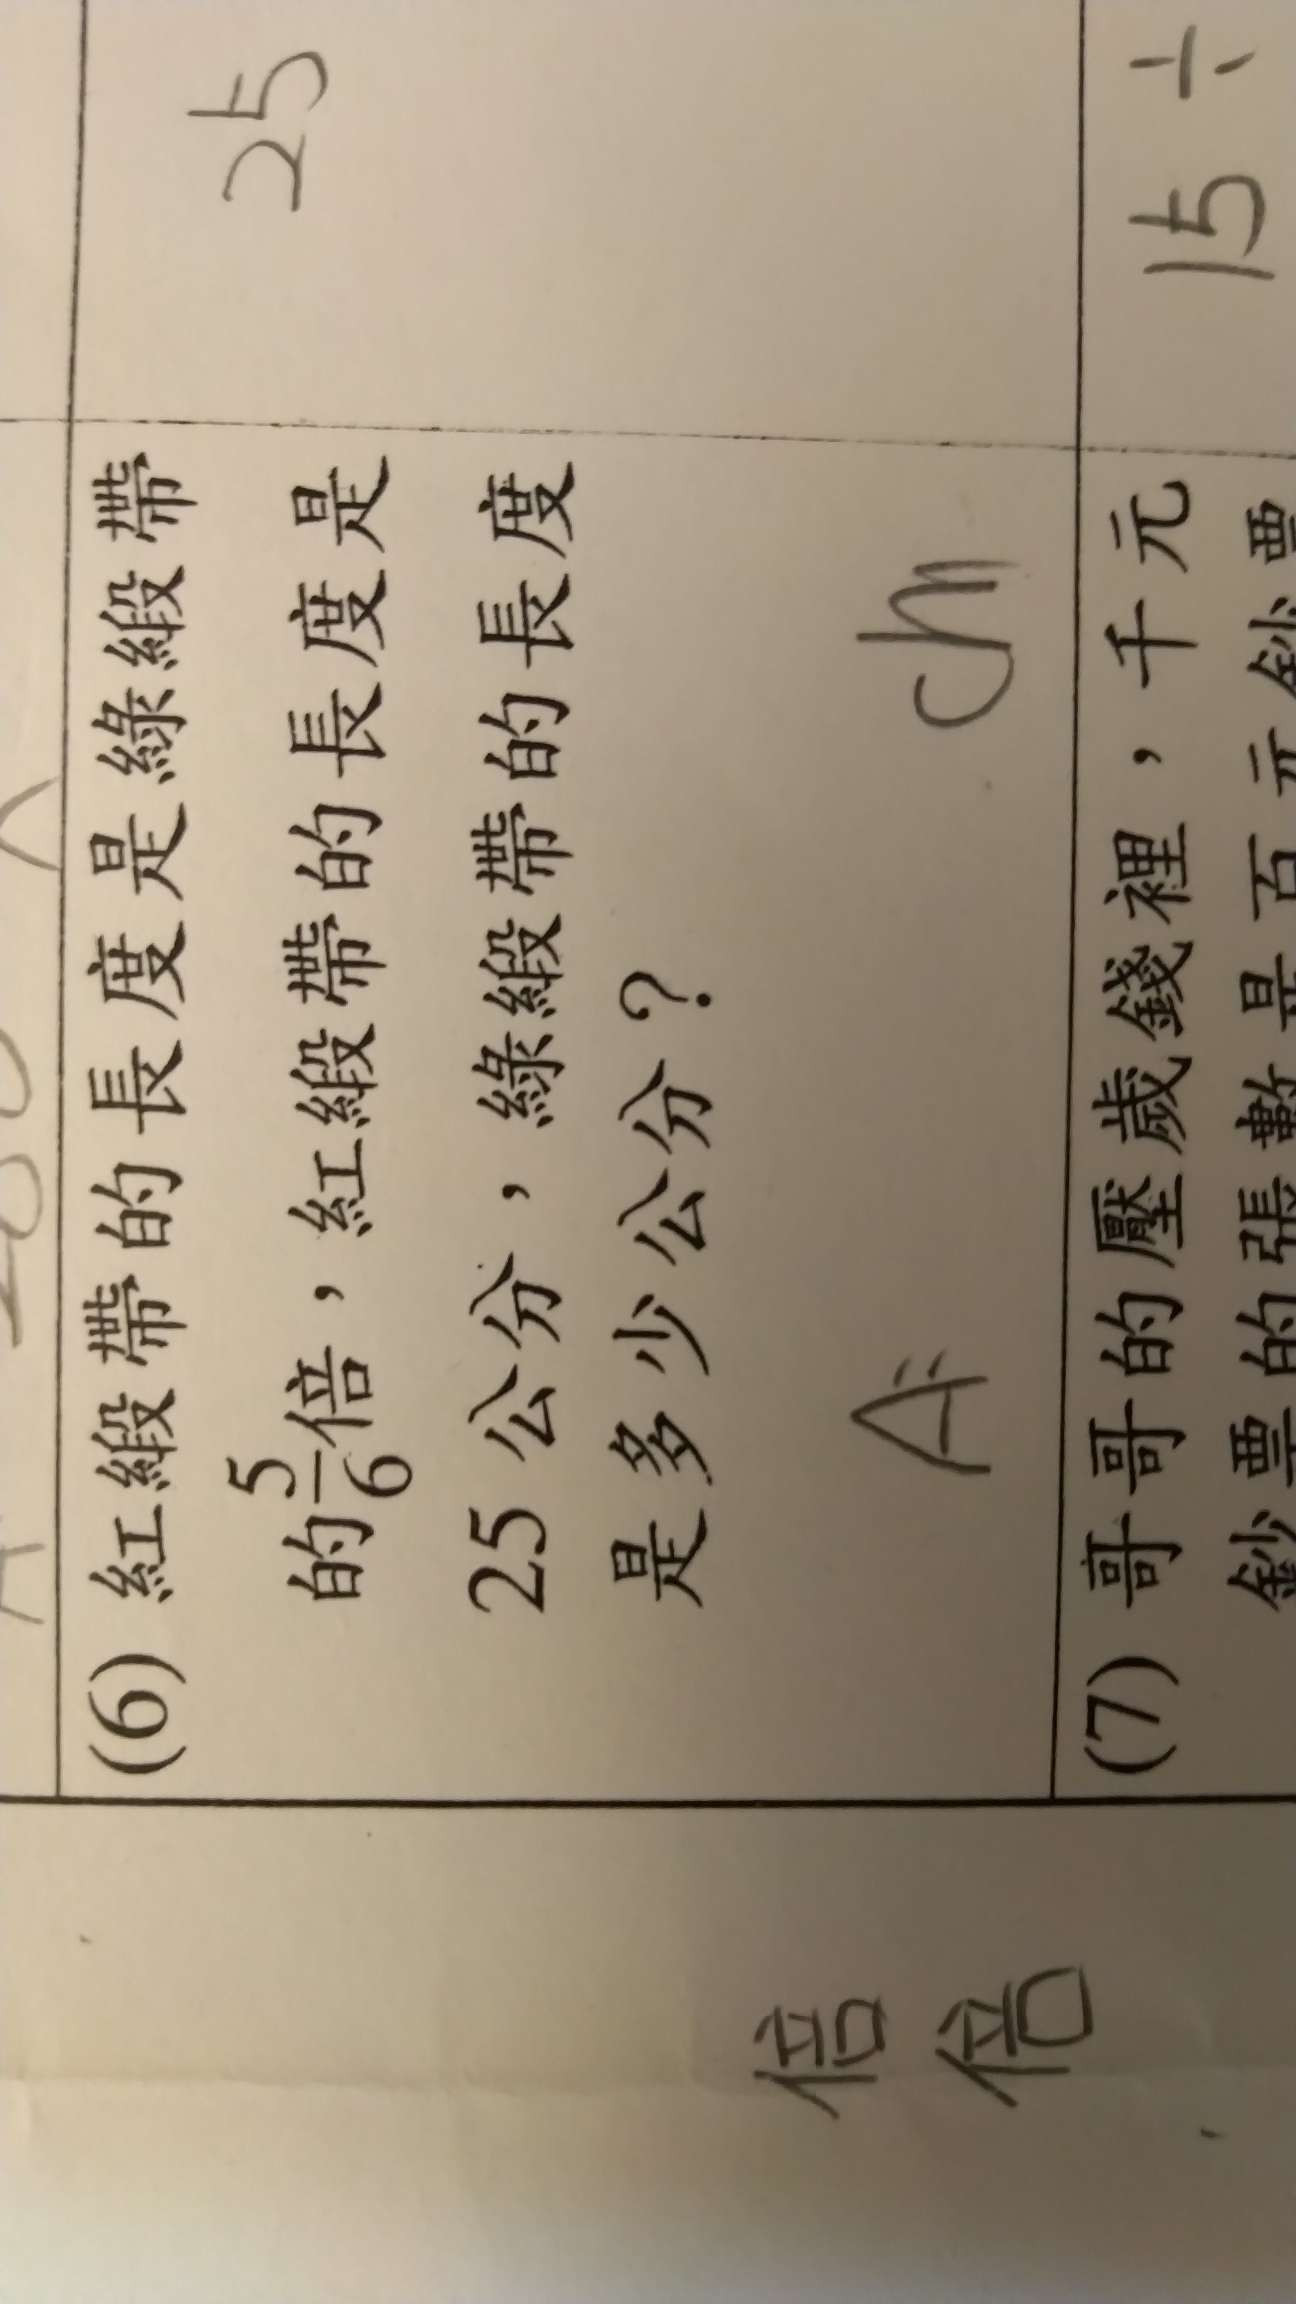 (6) 紅緞帶的長度是綠緞帶
的5/6倍，紅緞帶的長度是
25 公分，綠緞帶的長度
是多少公分？
A: cm
25
(7) 哥哥的壓歲錢裡，千元
鈔票的張數是百元鈔票
15 ÷
倍
倍